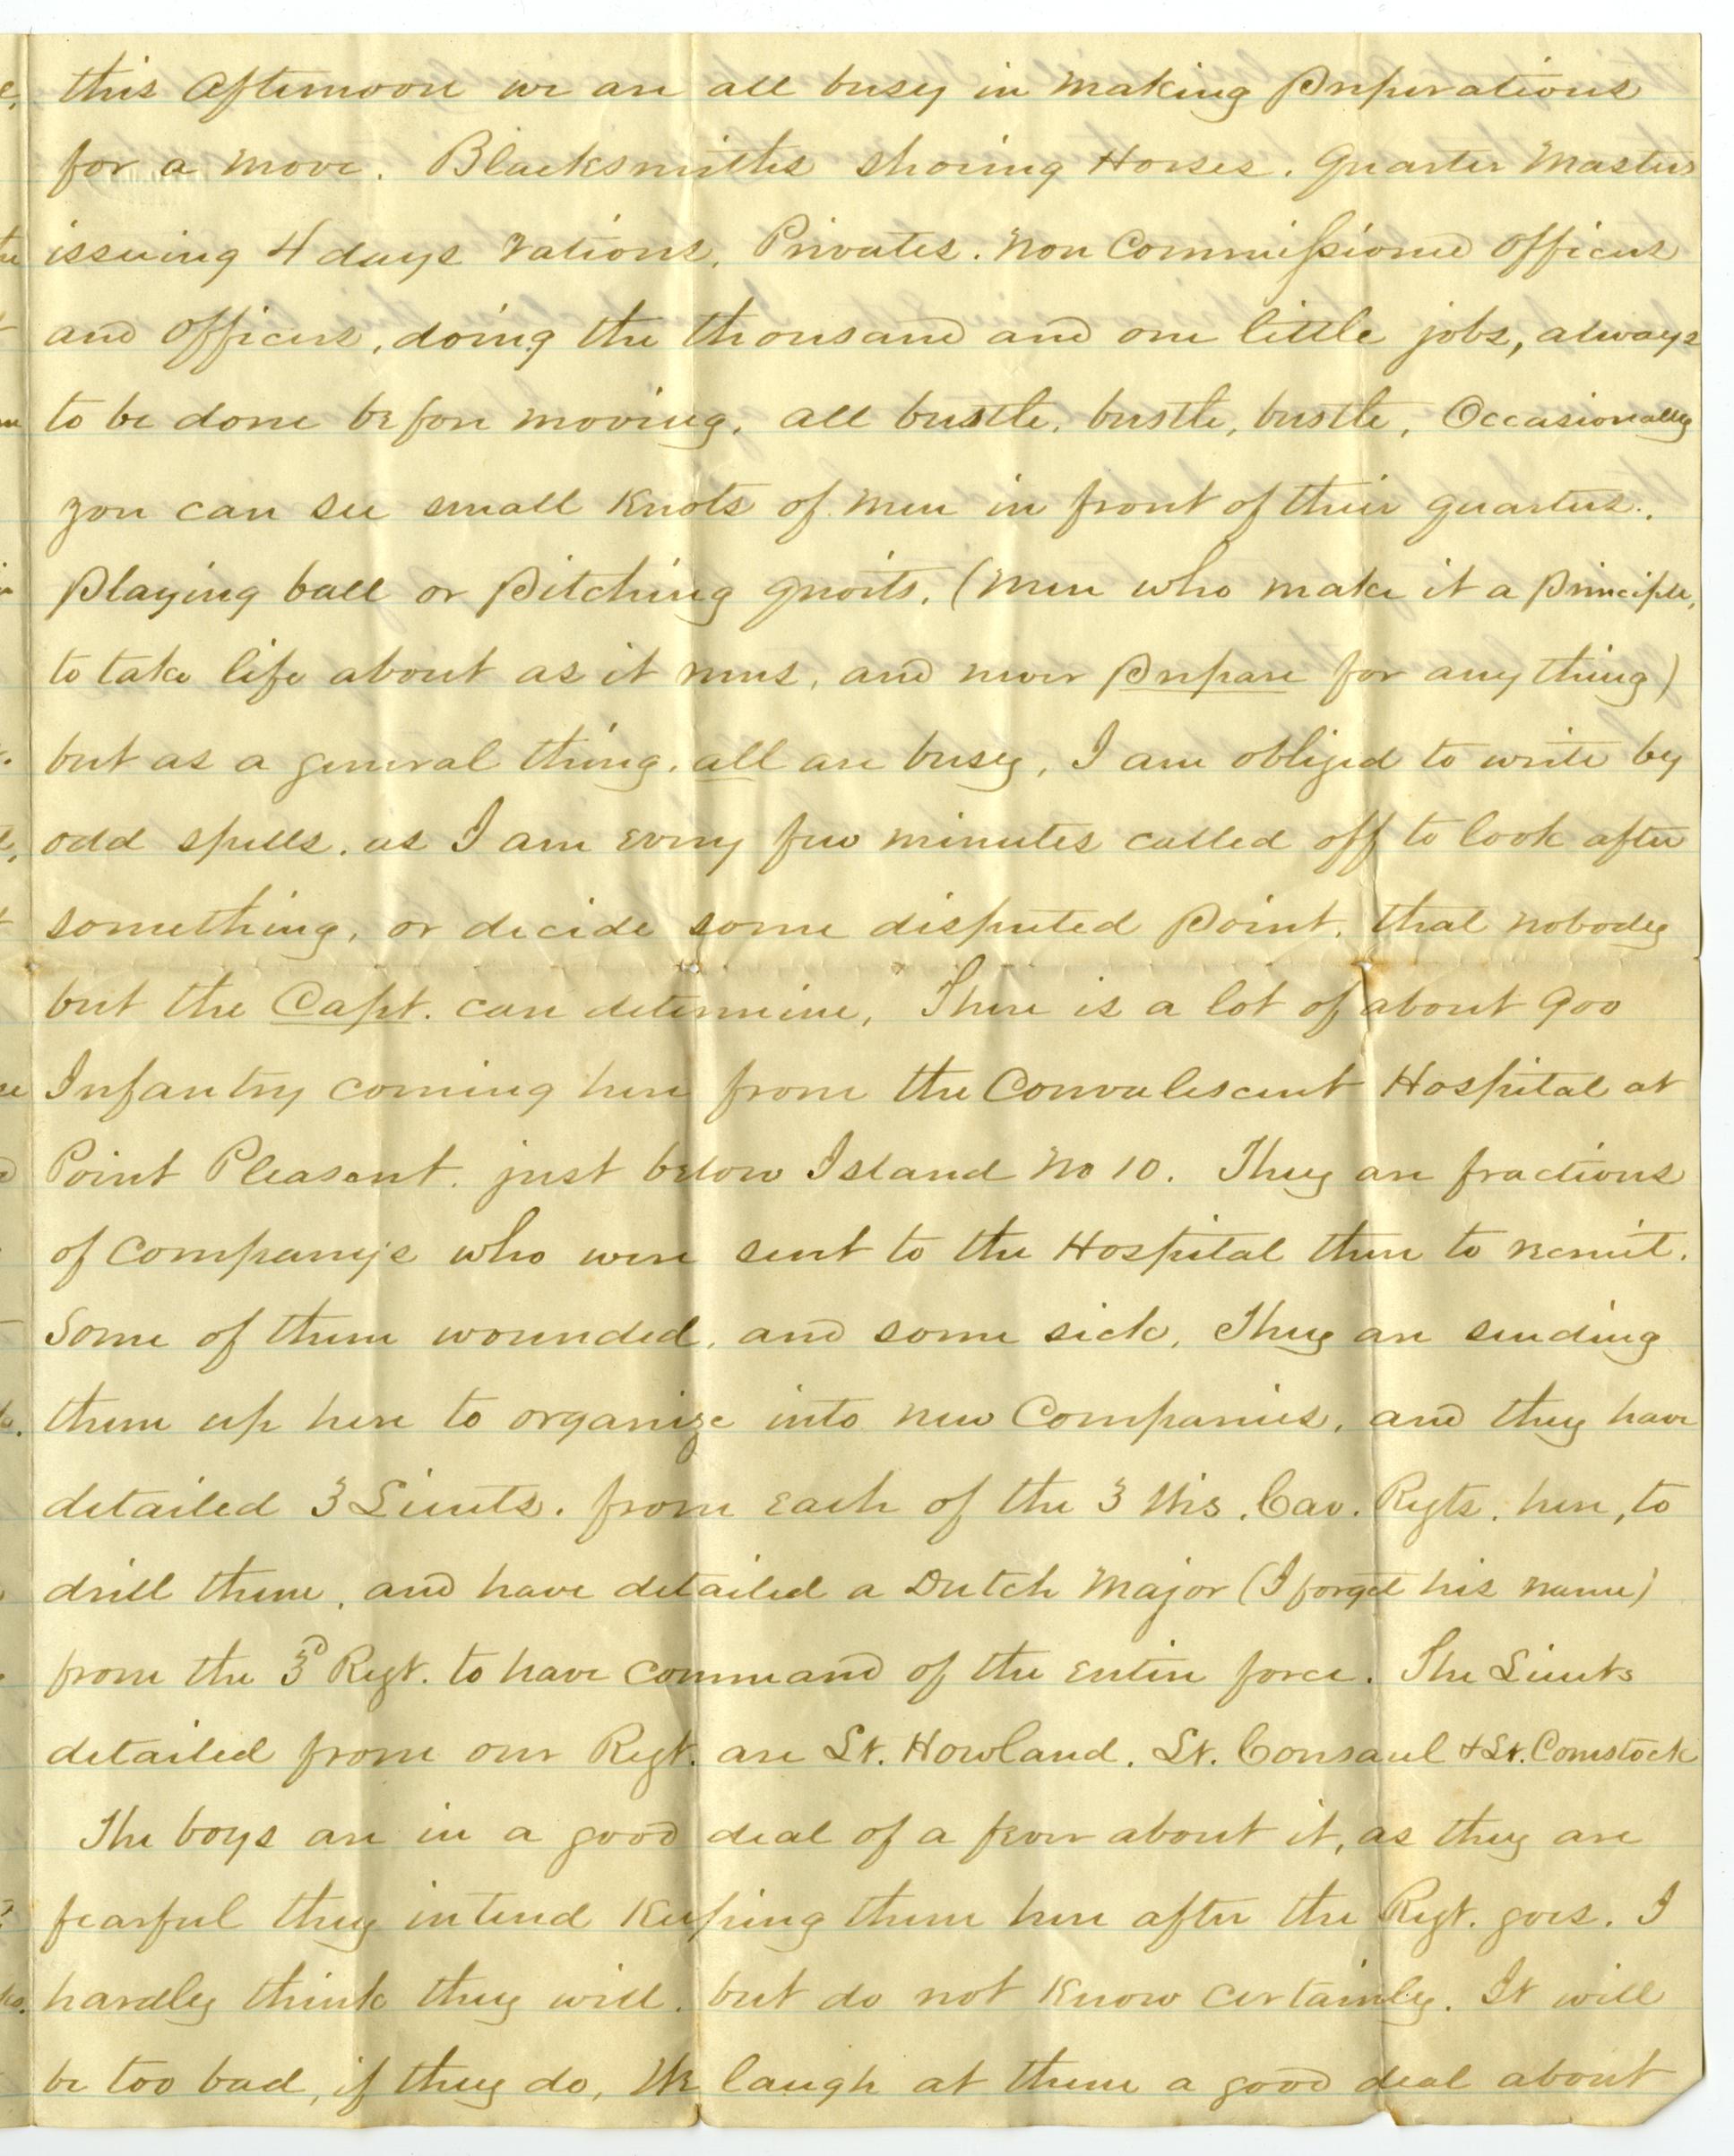 this Afternoon we are all busy in making Preperations
for a move. Blacksmiths shoeing Horses. Quarter Masters
issuing 4 days rations, Privates. Non Commissioned Officers
and Officers, doing the thousand and one little jobs, always
to be done before moving, all bustle, bustle, bustle, Occasionally
you can see small Knots of men in front of their quarters.
Playing ball or Pitching quoits, (men who make it a Principle,
to take life about as it runs, and never Prepare for any thing)
but as a general thing, all are busy, I am obliged to write by
odd spells. as I am every few minutes called off to look after
something, or decide some disputed Point, that nobody
but the Capt. can determine, There is a lot of about 900
Infantry coming here from the Convalescent Hospital at
Point Pleasant. just below Island No 10. They are fractions
of Companys who were sent to the Hospital there to recruit.
Some of them wounded, and some sick, They are sending
them up here to organize into new Companies, and they have
detailed 3 Lieuts. from each of the 3 Wis. Cav. Regts. here, to
drill them, and have detailed a Dutch Major (I forget his name)
from the 3d Regt. to have command of the entire force. The Lieuts
detailed from our Regt. are Lt. Howland. Lt. Consaul & Lt. Comstock
The boys are in a good deal of a fever about it, as they are
fearful they intend Keeping them here after the Regt. goes. I
hardly think they will. but do not Know certainly. It will
be too bad, if they do, We laugh at them a good deal about